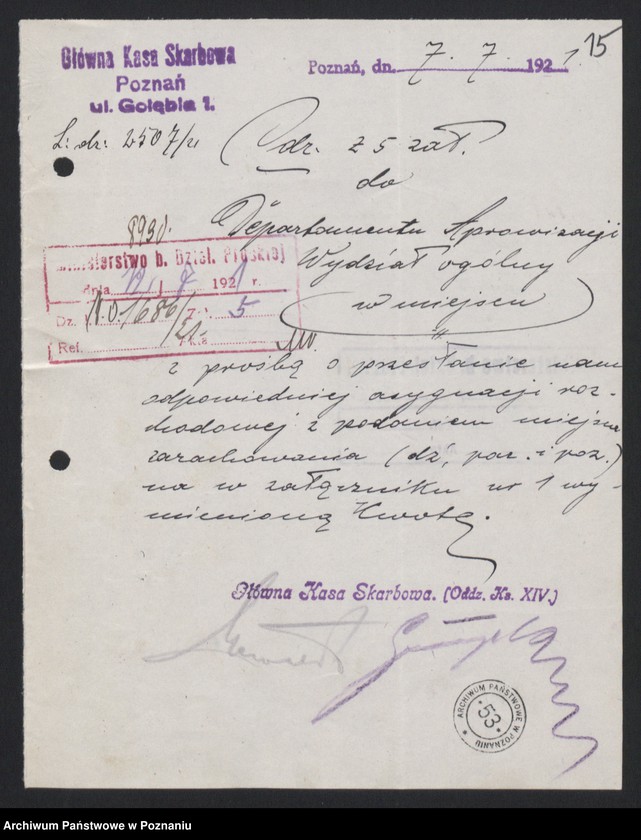 Główna Kasa Skarbowa
Poznań
ul. Gołębia 1.
Poznań, dn. 7. 7. 1921.
15
L: dz: 2507/21
Odr. z 5 zał.
do
8930.
Departamentu Aprowizacji
Wydział ogólny
w miejscu
Ministerstwo b. Dziel. Pruskiej
dnia 1921 r.
Dz. Zał. 5
Ref.
z prośbą o przesłanie nam
odpowiedniej asygnacji roz-
chodowej z podaniem miejsca
zarachowania (dź, par. i poz.)
na w załączniku nr 1 wy-
mienioną kwotę.
Główna Kasa Skarbowa. (Oddz. Ks. XIV.)
ARCHIWUM PAŃSTWOWE W POZNANIU
53
Archiwum Państwowe w Poznaniu